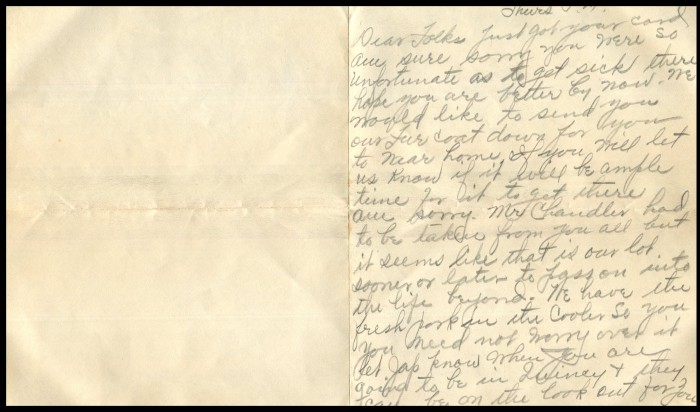 Thurs P.M.
Dear Folks Just got your card
am sure sorry you were so
unfortunate as to get sick there
hope you are better by now. We
would like to send you
our Fur Coat down for you
to wear home. If you will let
us know if it will be ample
time for it to get there
am sorry Mr Chandler had
to be taken from you all but
it seems like that is our lot
sooner or later to pass on into
the life beyond. We have the
fresh pork in the Cooler So you
you need not worry over it
let Jap know when you are
going to be in Quincy & they
can be on the look out for you